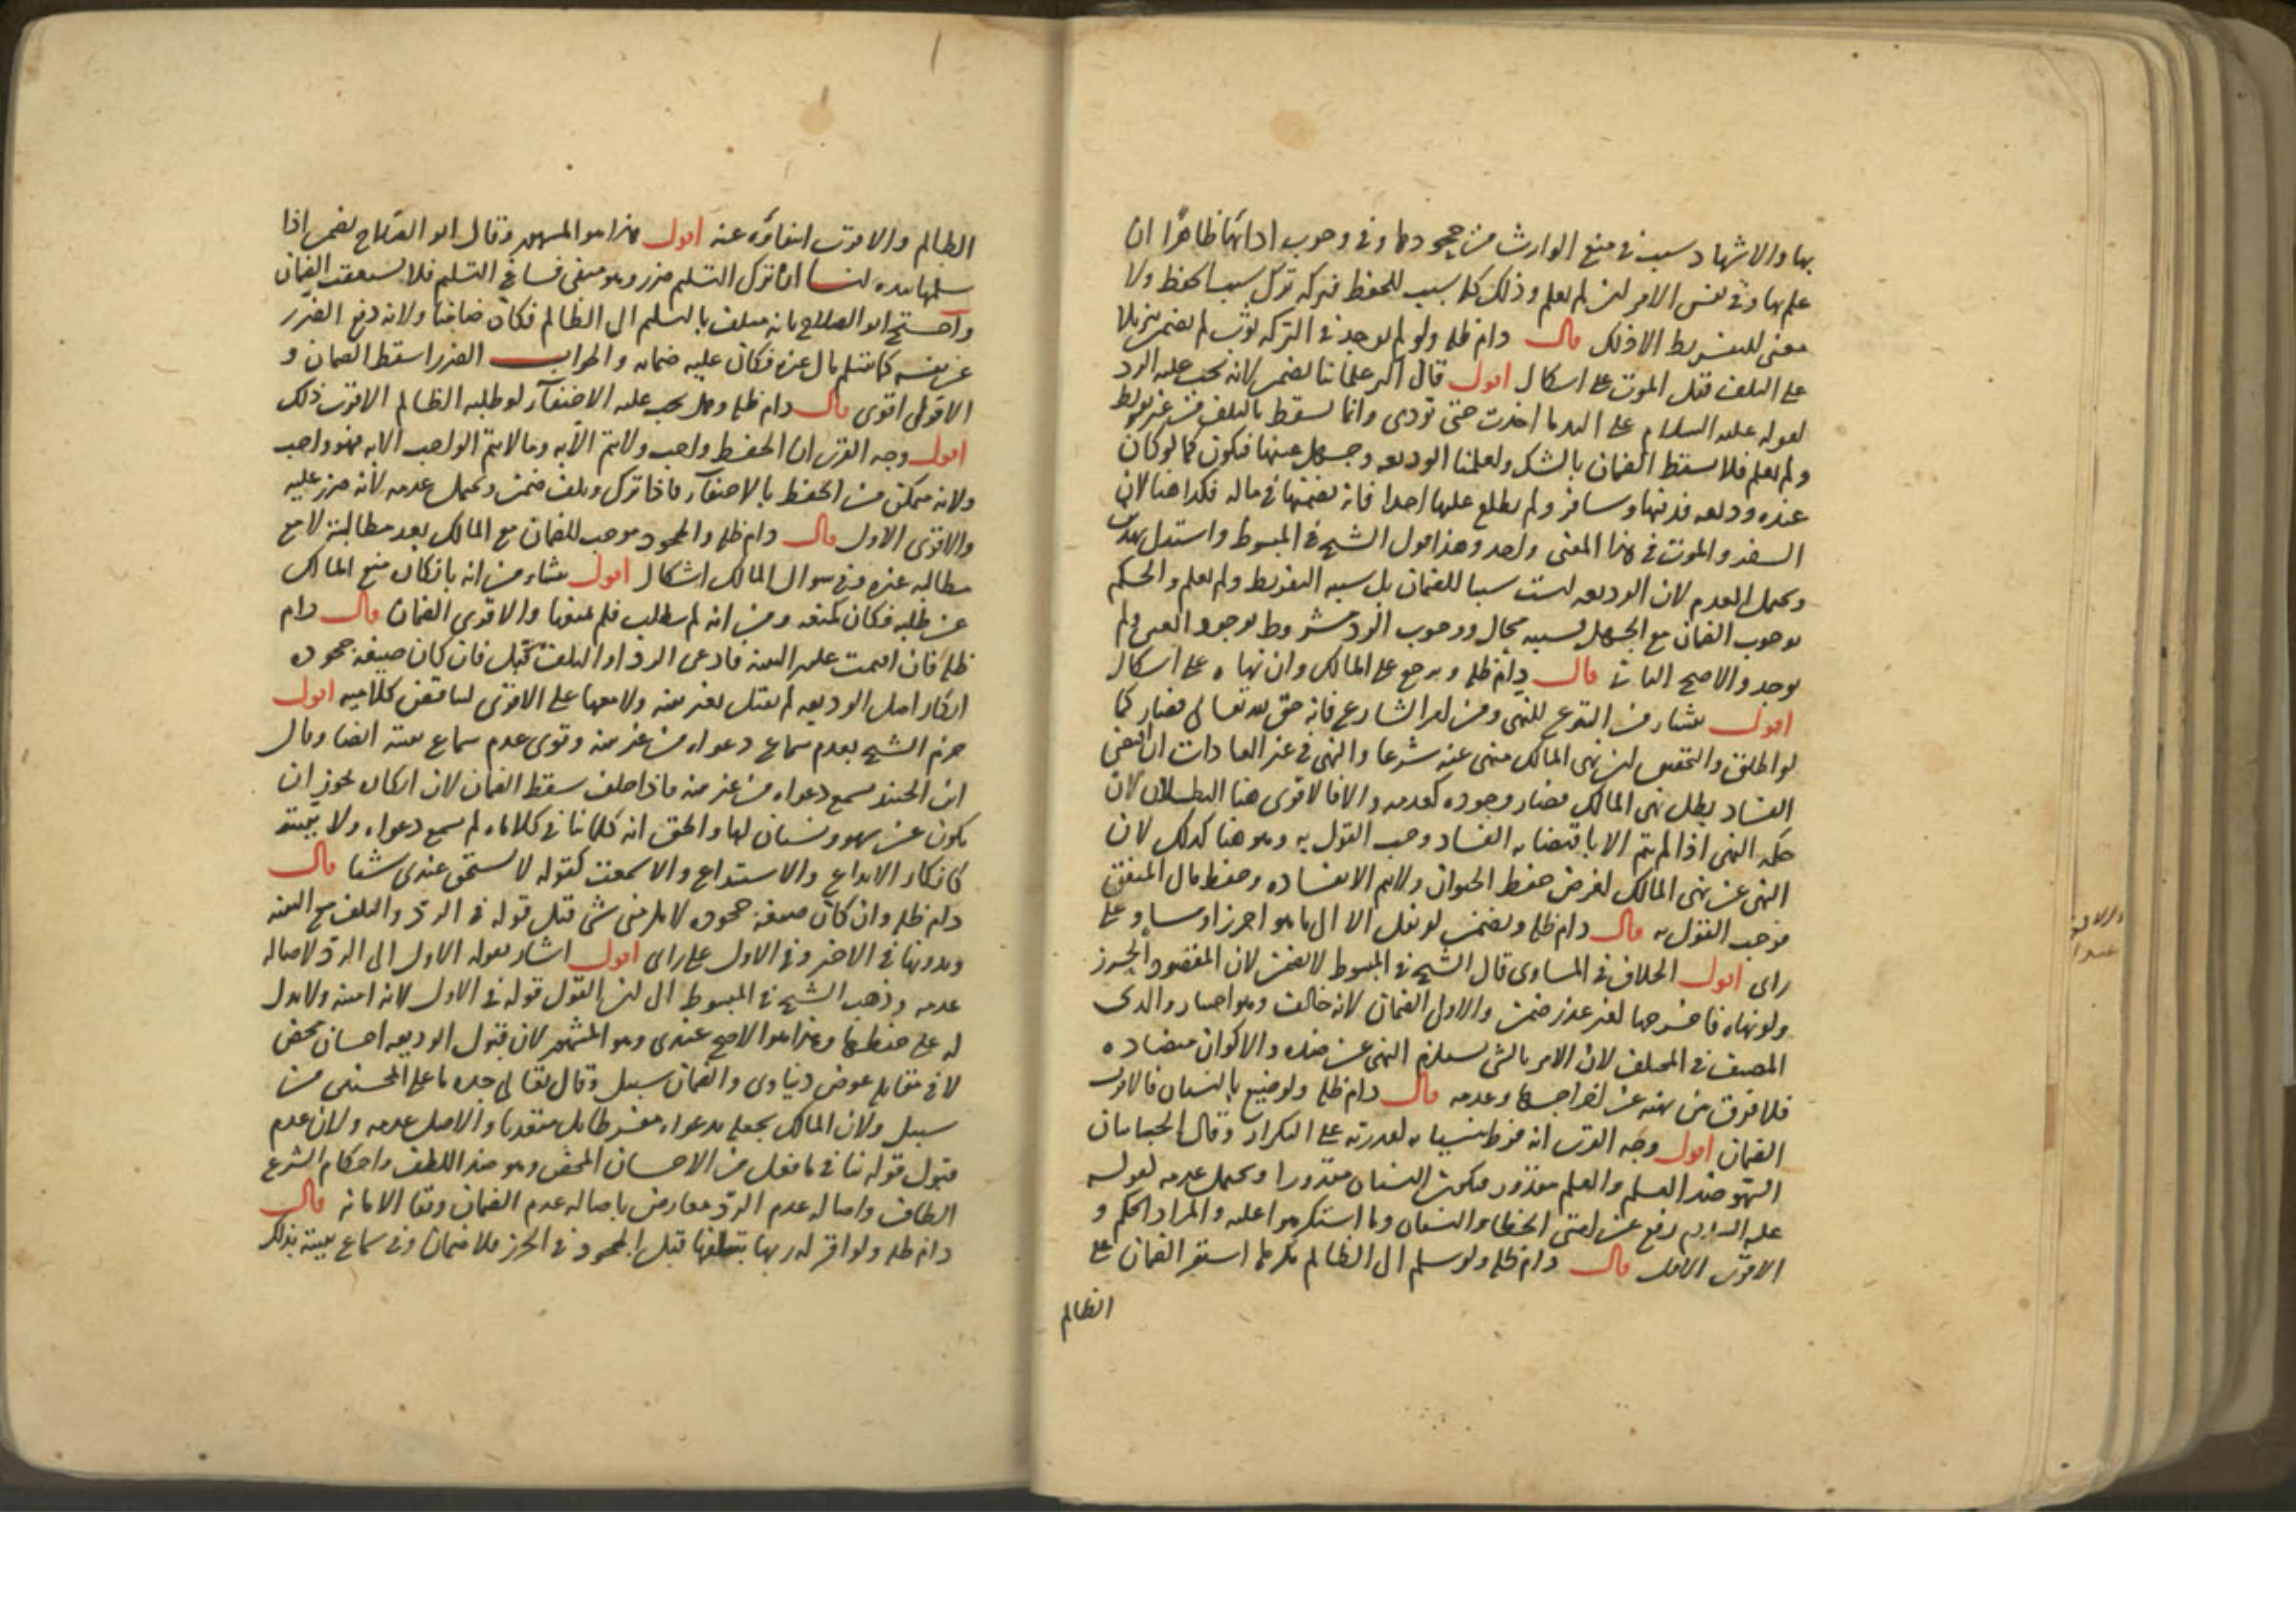 بها والاشهاد سبب في منع الوارث من جحودها وفي وجوب ادائها ظاهرا ان
علم بها وفي نفس الامر لمن لم يعلم وذلك كله سبب للحفظ فتركه ترك سبب الحفظ ولا
معنى للتفريط الا ذلك قال دام ظله ولو لم توجد في التركة لم يضمن تنزيلا
على التلف قبل الموت على اشكال اقول قال اكثر علمائنا يضمن لانه يجب عليه الرد
لقوله عليه السلام على اليد ما اخذت حتى تودى وانما يسقط بالتلف من غير تفريط
ولم يعلم فلا يسقط الضمان بالشك ولعلمنا الوديعه وجهل عينها فيكون كما لو كان
عنده وديعه فدفنها وسافر ولم يطلع عليها احدا فانه يضمنها في ماله فكذا هنا لان
السفر والموت في هذا المعنى واحد وهذا قول الشيخ في المبسوط واستدل بهذا
ويحتمل العدم لان الوديعه ليست سببا للضمان بل سببه التفريط ولم يعلم والحكم
بوجوب الضمان مع الجهل بسببه محال ووجوب الرد مشروط بوجود العين ولم
يوجد والاصح الثاني قال دام ظله ويرجع على المالك وان نهاه على اشكال
اقول ينشا من التبرع للنهي ومن امر الشارع فانه حق لله تعالى فصار كما
لو اطلق والتحقيق ان نهي المالك منهي عنه شرعا والنهي في غير العبادات ان اقتضى
الفساد بطل نهي المالك فصار وجوده كعدمه والا فالاقوى هنا البطلان لان
حكمة النهي اذا لم يتم الا باقتضائه الفساد وجب القول به وهو هنا كذلك لان
النهي عن نهي المالك لغرض حفظ الحيوان ولا يتم الا بفساده وحفظ مال المنفق
فوجب القول به قال دام ظله ويضمن لو نقل الا الى ما هو احرز او مساو على
راى اقول الخلاف في المساوى قال الشيخ في المبسوط لا يضمن لان المقصود الحرز
ولو نهاه فاخرجها لغير عذر ضمن والاولى الضمان لانه خالف وهو اختيار والدى
المصنف في المختلف لان الامر بالشى يستلزم النهي عن ضده والاكوان متضاده
فلا فرق بين نهيه عن اخراجها وعدمه قال دام ظله ولو ضيع بالنسيان فالاقرب
الضمان اقول وجه القرب انه فرط بنسيانه لقدرته على التكرار وقال الجبائيان
السهو ضد العلم والعلم مقدور فيكون النسيان مقدورا ويحتمل عدمه لقوله
عليه السلام رفع عن امتي الخطا والنسيان وما استكرهوا عليه والمراد الحكم و
الاقرب الاول قال دام ظله ولو سلم الى الظالم مكرها استقر الضمان على
الظالم
الظالم والاقرب انتفاؤه عنه اقول هذا هو المشهور وقال ابو الصلاح يضمن اذا
سلمها بيده لنا ان ترك التسليم ضرر وهو منفى فساغ التسليم فلا يستعقب الضمان
واحتج ابو الصلاح بانه متلف بالتسليم الى الظالم فكان ضامنا ولانه دفع الضرر
عن نفسه بتسليم مال غيره فكان عليه ضمانه والجواب الضرر اسقط الضمان و
الاول اقوى قال دام ظله وهل يجب عليه الاختفآء لو طلبه الظالم الاقرب ذلك
اقول وجه القرب ان الحفظ واجب ولا يتم الا به وما لا يتم الواجب الا به فهو واجب
ولانه ممكن من الحفظ بالاختفآء فاذا ترك وتلف ضمن ويحتمل عدمه لانه ضرر عليه
والاقوى الاول قال دام ظله والجحود موجب للضمان مع المالك بعد مطالبته لا مع
مطالبة غيره وفي سوال المالك اشكال اقول ينشا من انه بانكاره منع المالك
عن طلبه فكان كمنعه ومن انه لم يطالب فلم يمنعها والاقوى الضمان قال دام
ظله فان اقيمت عليه البينه فادعى الرد او التلف قبل فان كان صيغة جحوده
انكار اصل الوديعه لم يقبل بغير بينه ولا معها على الاقوى لتناقض كلاميه اقول
جزم الشيخ بعدم سماع دعواه من غير بينه وقوى عدم سماع بينته ايضا وقال
ابن الجنيد يسمع دعواه من غير بينه فاذا حلف سقط الضمان لان انكاره يجوز ان
يكون عن سهو ونسيان لها والحق انه كلما تنافى كلاماه لم يسمع دعواه ولا بينته
كانكار الايداع والاستيداع والا سمعت كقوله لا يستحق عندى شيا قال
دام ظله وان كان صيغة جحوده لا يلزمني شى قبل قوله في الرد والتلف مع البينه
وبدونها في الاخير وفي الاول على راى اقول اشار بقوله الاول الى الرد لاصالة
عدمه وذهب الشيخ في المبسوط الى ان القول قوله في الاول لانه امينه ولا بدل
له على حفظها وهذا هو الاصح عندى وهو المشهور لان قبول الوديعه احسان محض
لا في مقابلة عوض دنياوى والضمان سبيل وقال تعالى جده ما على المحسنين من
سبيل ولان المالك يجعله بدعواه متقدما والاصل عدمه ولان عدم
قبول قوله تنافى ما فعل من الاحسان المحض وهو ضد اللطف واحكام الشرع
الطاف واصالة عدم الرد معارض باصالة عدم الضمان وبقا الامانه قال
دام ظله ولو اقر له ربها بتلفها قبل الجحود في الحرز فلا ضمان وفي سماع بينته بذلك